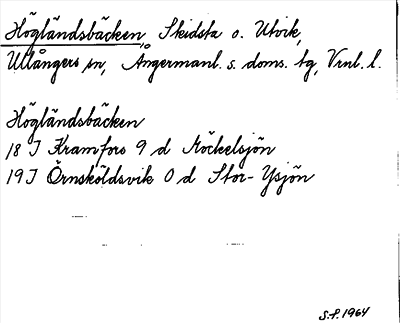 Högländsbäcken, Skidsta o. Utvik,
Ullångers sn, Ångermanl. s. doms. tg, Vrnl. l.
Högländsbäcken
18 I Kramfors 9 d Möckelsjön
19 I Örnsköldsvik 0 d Stor-Ysjön
S.P. 1964